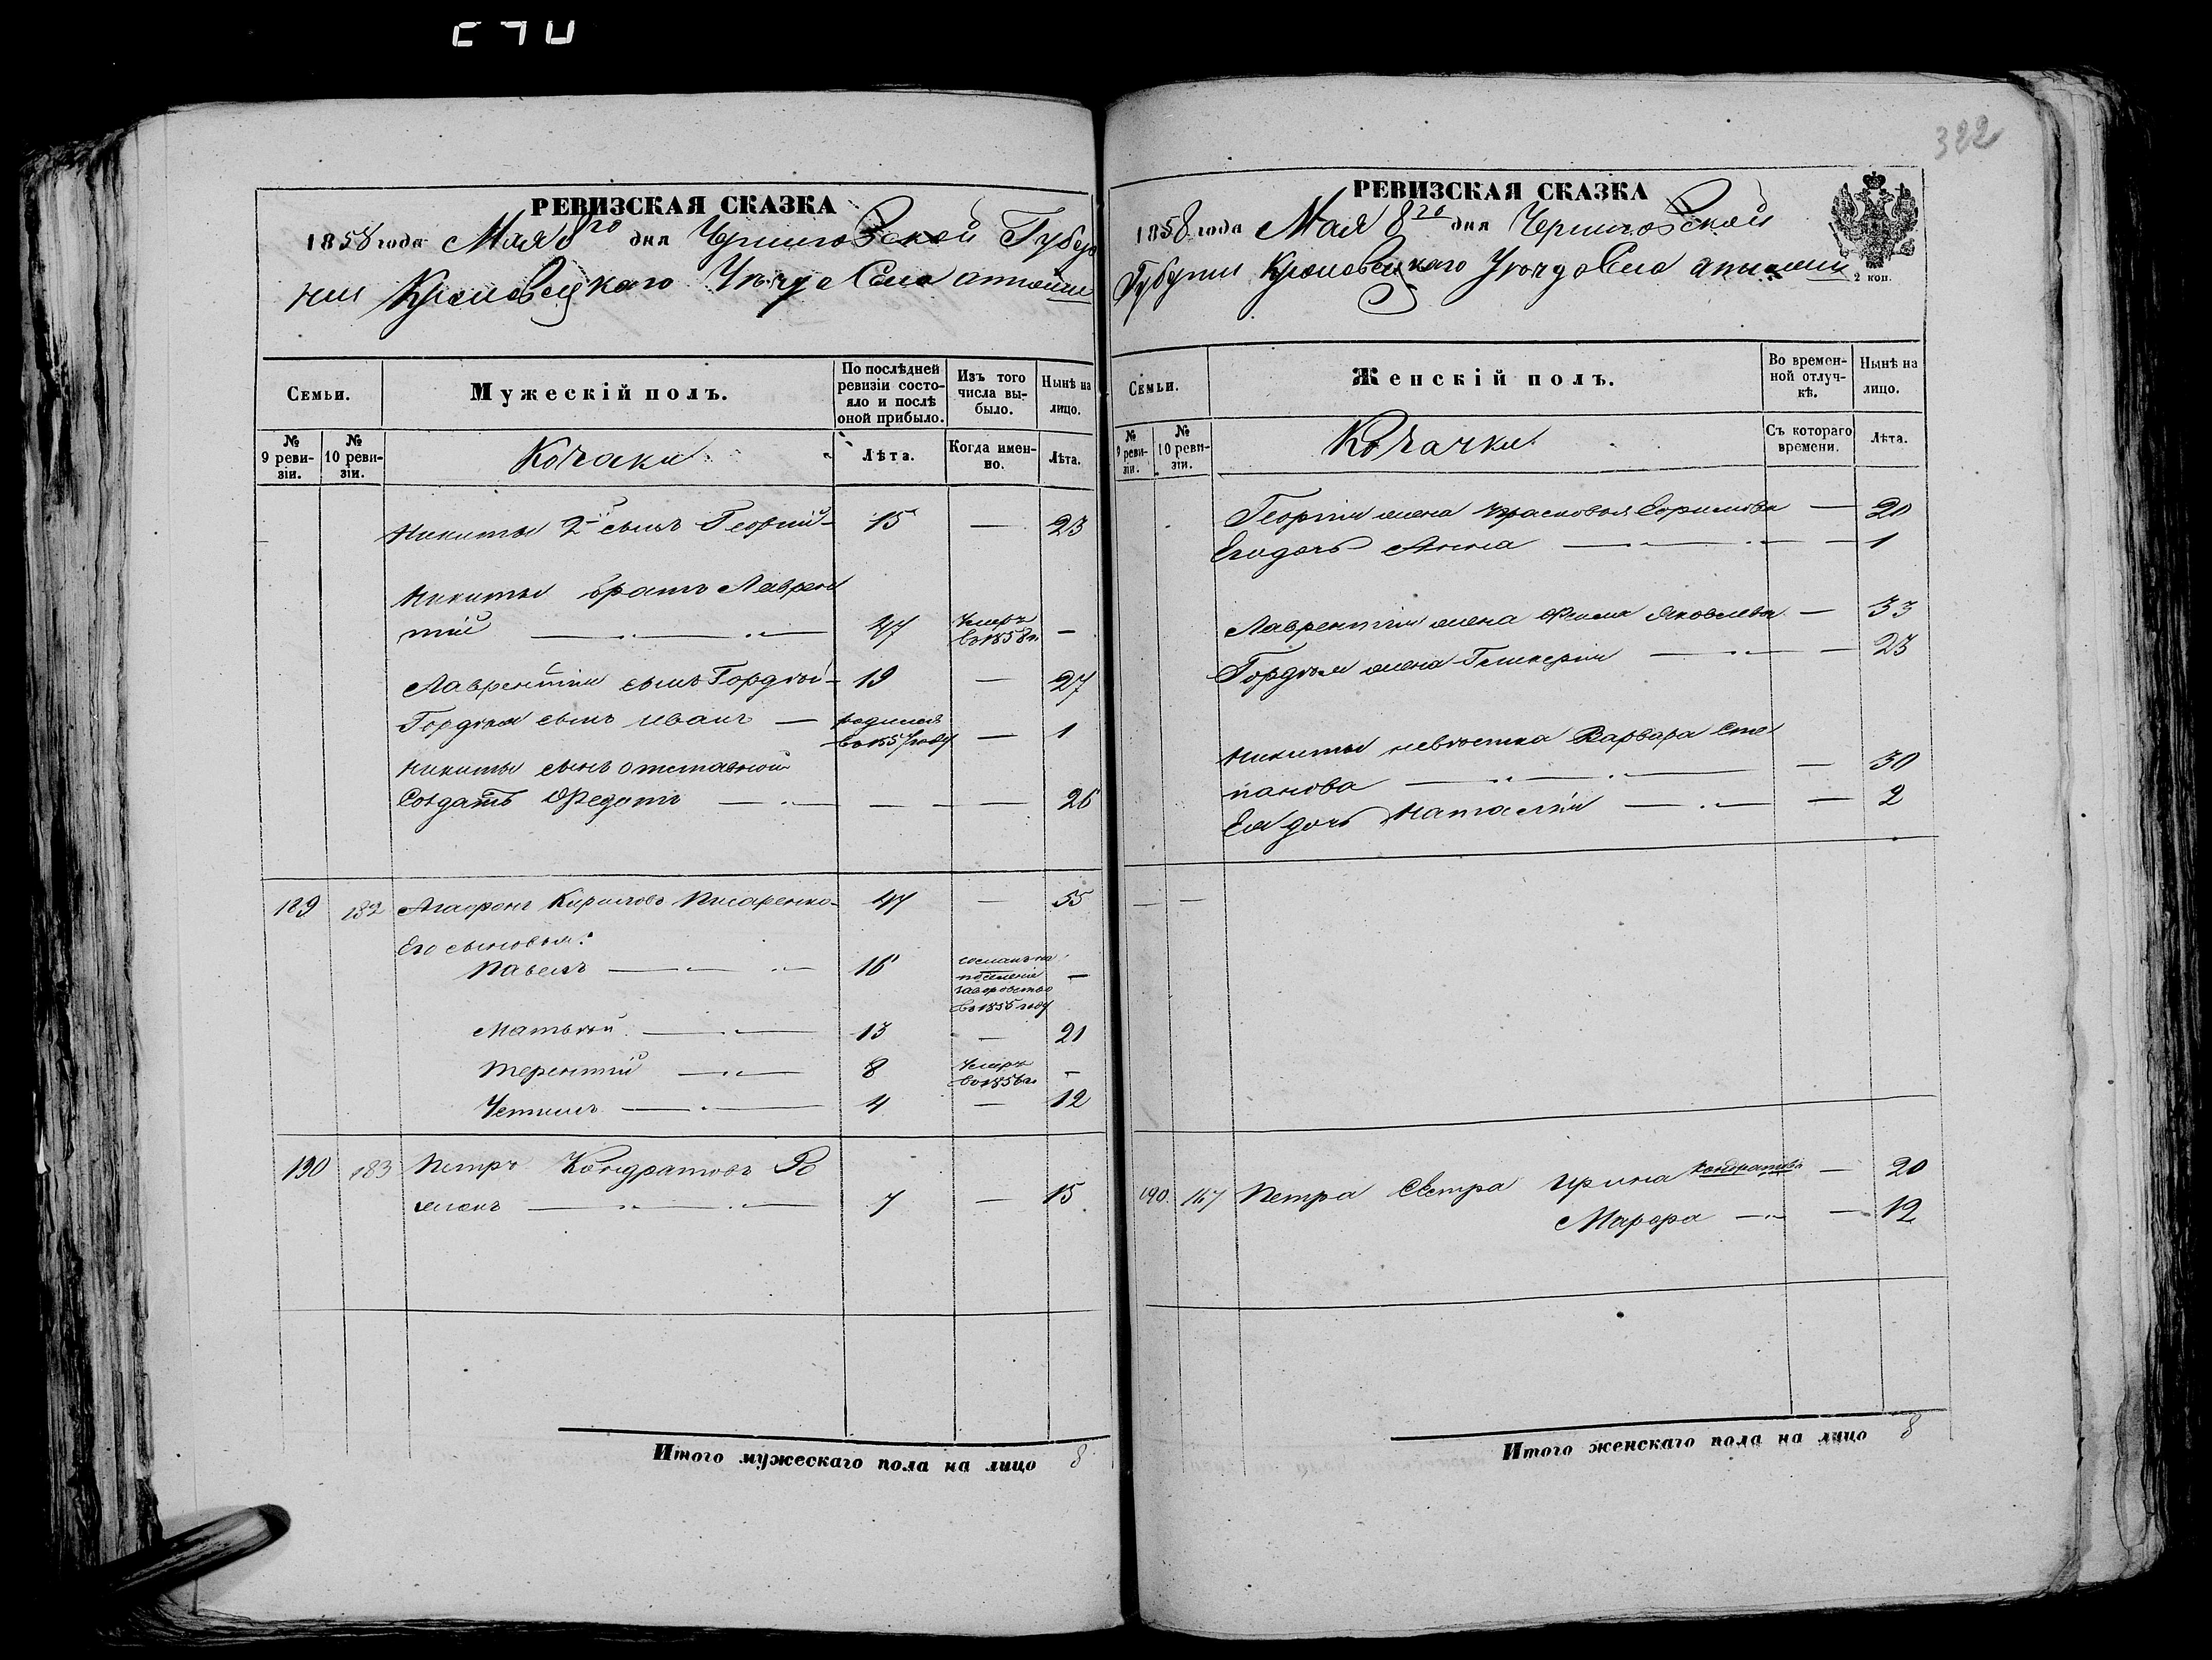 322
РЕВИЗСКАЯ СКАЗКА
1858 года Мая 8го дня Черниговской Губер
ніи Кролевецкаго Уѣзда Села
Семьи.
Мужескій полъ.
По послѣдней ревизіи состо-
яло и послѣ
оной прибыло.
Изъ того
числа вы-
было.
Нынѣ на
лицо.
№
9 реви-
зіи.
№
10 реви-
зіи.
Козаки
Лѣта.
Когда имен-
но.
Лѣта.
Никиты 2й сынъ Георгій 15 — 23
Никиты братъ Лаврен
тій — 47 Умеръ въ 1858 г. —
Лаврентія сынъ Гордѣй — 19 — 27
Гордѣя сынъ Иванъ — родился въ 1857 году — 1
Никиты сынъ отставной
Солдатъ Федотъ — — — 26
189 182 Агафонъ Кириловъ Писаренко 47 — 55
Его сыновья:
Павелъ — 16 сосланъ на
поселеніе
за воровство
въ 1856 году —
Матвѣй — 13 — 21
Терентій — 8 Умеръ въ 1856 г. —
Устимъ — 4 — 12
190 183 Петръ Кондратовъ Ро
манъ — 7 — 15
Итого мужескаго пола на лицо 8
РЕВИЗСКАЯ СКАЗКА
1858 года Мая 8го дня Черниговской
Губерніи Кролевецкаго Уѣзда Села
2 коп.
Семьи.
Женскій полъ.
Во времен-
ной отлуч-
кѣ.
Нынѣ на
лицо.
№
9 реви-
зіи.
№
10 реви-
зіи.
Козачки
Съ котораго
времени.
Лѣта.
Георгія жена Прасковья — 20
Его дочь Анна — 1
Лаврентія жена Яковлева — 33
Гордѣя жена Гликерія — 23
Никиты невѣстка Варвара Сте
панова — 30
Ея дочь Наталія — 2
190 167 Петра Сестра Ирина Кондратова — 20
Марфа — 12
Итого женскаго пола на лицо 8